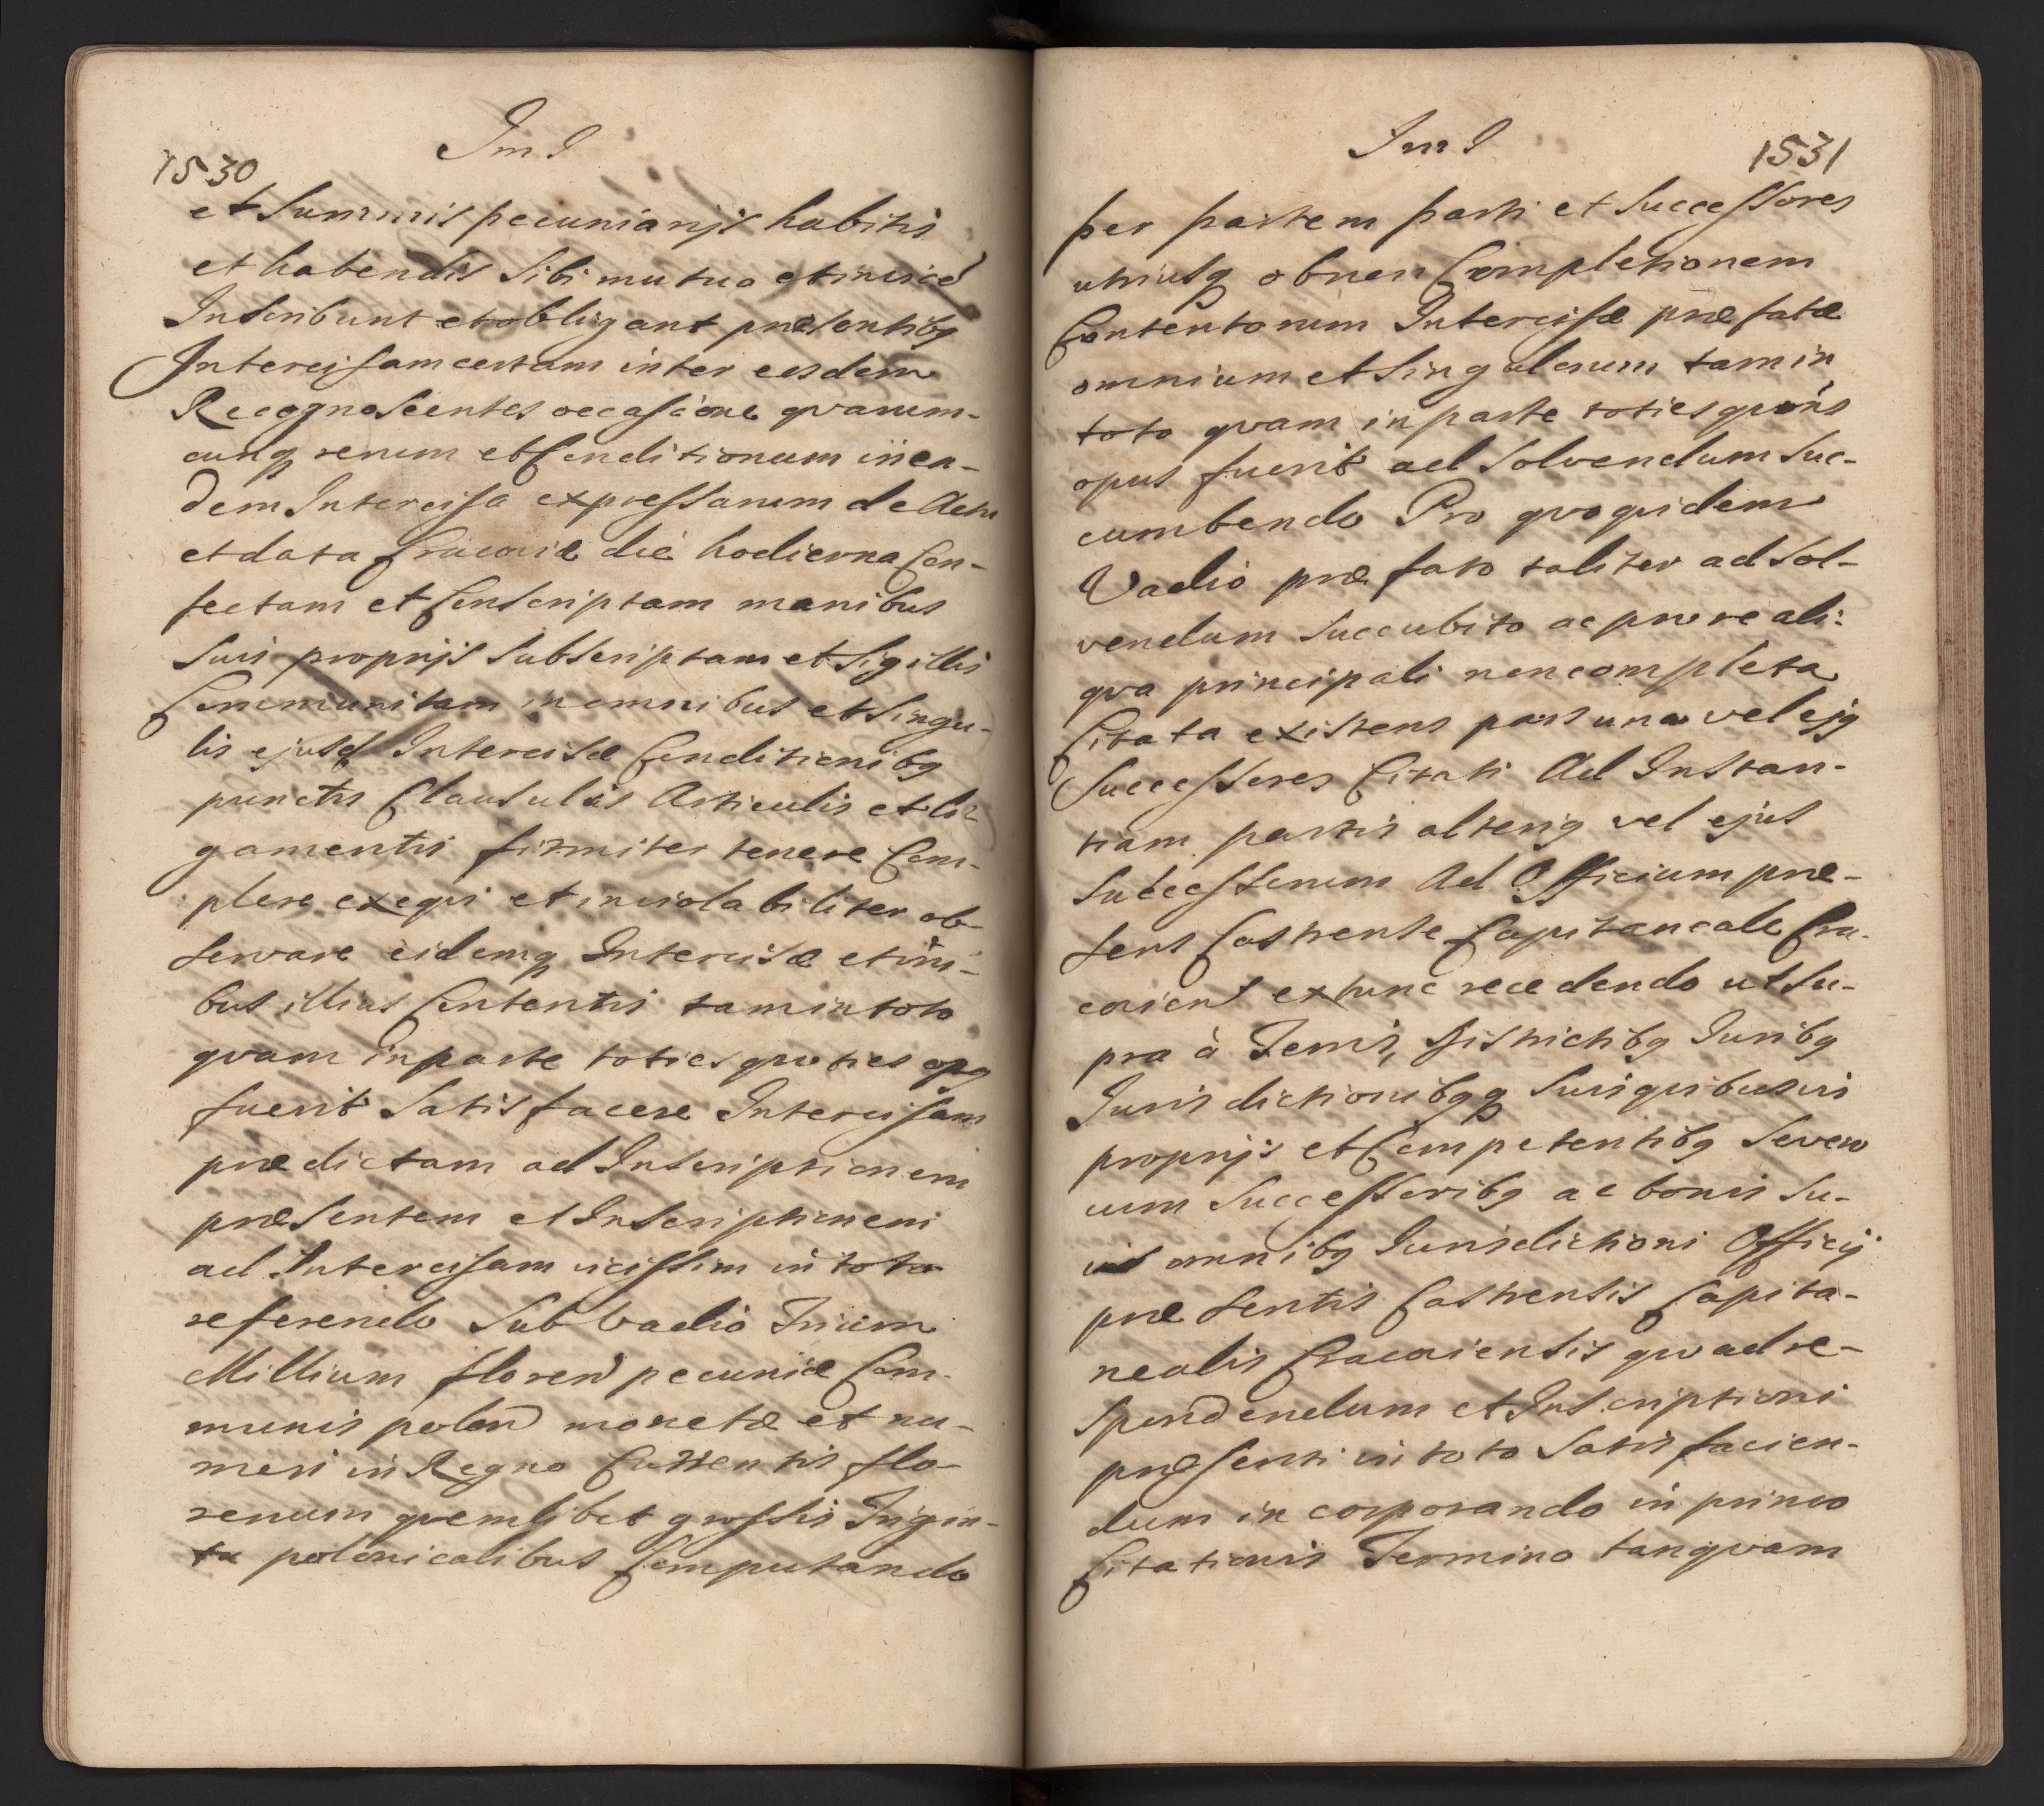 1530
Im I
et Summis pecuniarijs habitis
et habendis Sibi mutuo et invicē
Inscribunt et obligant præsentibq
Intercisam certam inter eosdem
Recognoscentes occasione qvarum-
cunq rerum et Conditionum in ea-
dem Intercisa expressarum de Actu
et data Cracoviæ die hodierna Con-
fectam et Conscriptam manibus
Suis proprijs Subscriptam et Sigillis
Communitam in omnibus et Singu-
lis ejusd Intercisæ Conditionibq
punctis Clausulis Articulis et li-
gamentis firmiter tenere Com-
plere exeqvi et inviolabiliter ob-
servare eidemq Intercisæ et oīni-
bus illius Contentis tam in toto
qvam in parte toties qvoties opq
fuerit Satisfacere Intercisam
prædictam ad Inscriptionem
præsentem et Inscriptionem
ad Intercisam vicissim in toto
referendo Sub Vadio Trium
Millium floren pecuniæ Com-
munis polon monetæ et nu-
meri in Regno Currentis flo-
renum qvemlibet grossis Trigin-
ta polonicalibus Computando
Im I
1531
per partem parti et Successores
utriusq ob non Completionem
Contentorum Intercisæ præfatæ
omnium et Singulorum tam in
toto qvam in parte toties qvoties
opus fuerit ad Solvendum Suc-
cumbendo Pro qvoqvidem
Vadio præfato taliter ad Sol-
vendum Succubito ac pro re ali-
qva principali non completa
Citata existens pars una vel ejq
Successores Citati Ad Instan-
tiam partis alteriq vel ejus
Successorum Ad Officium præ-
sens Castrense Capitaneale Cra-
coviens extunc recedendo ut Su-
pra à Terris, Districtibq Juribq
Jurisdictionibqq Suis qvibusvis
proprijs et Competentibq Seveo
cum Successoribq ac bonis Su-
is omnibq Jurisdictioni Officij
præsentis Castrensis Capita-
nealis Cracoviensis qvo ad re-
spondendum et Inscriptioni
præsenti in toto Satisfacien-
dum incorporando in primo
Citationis Termino tanqvam